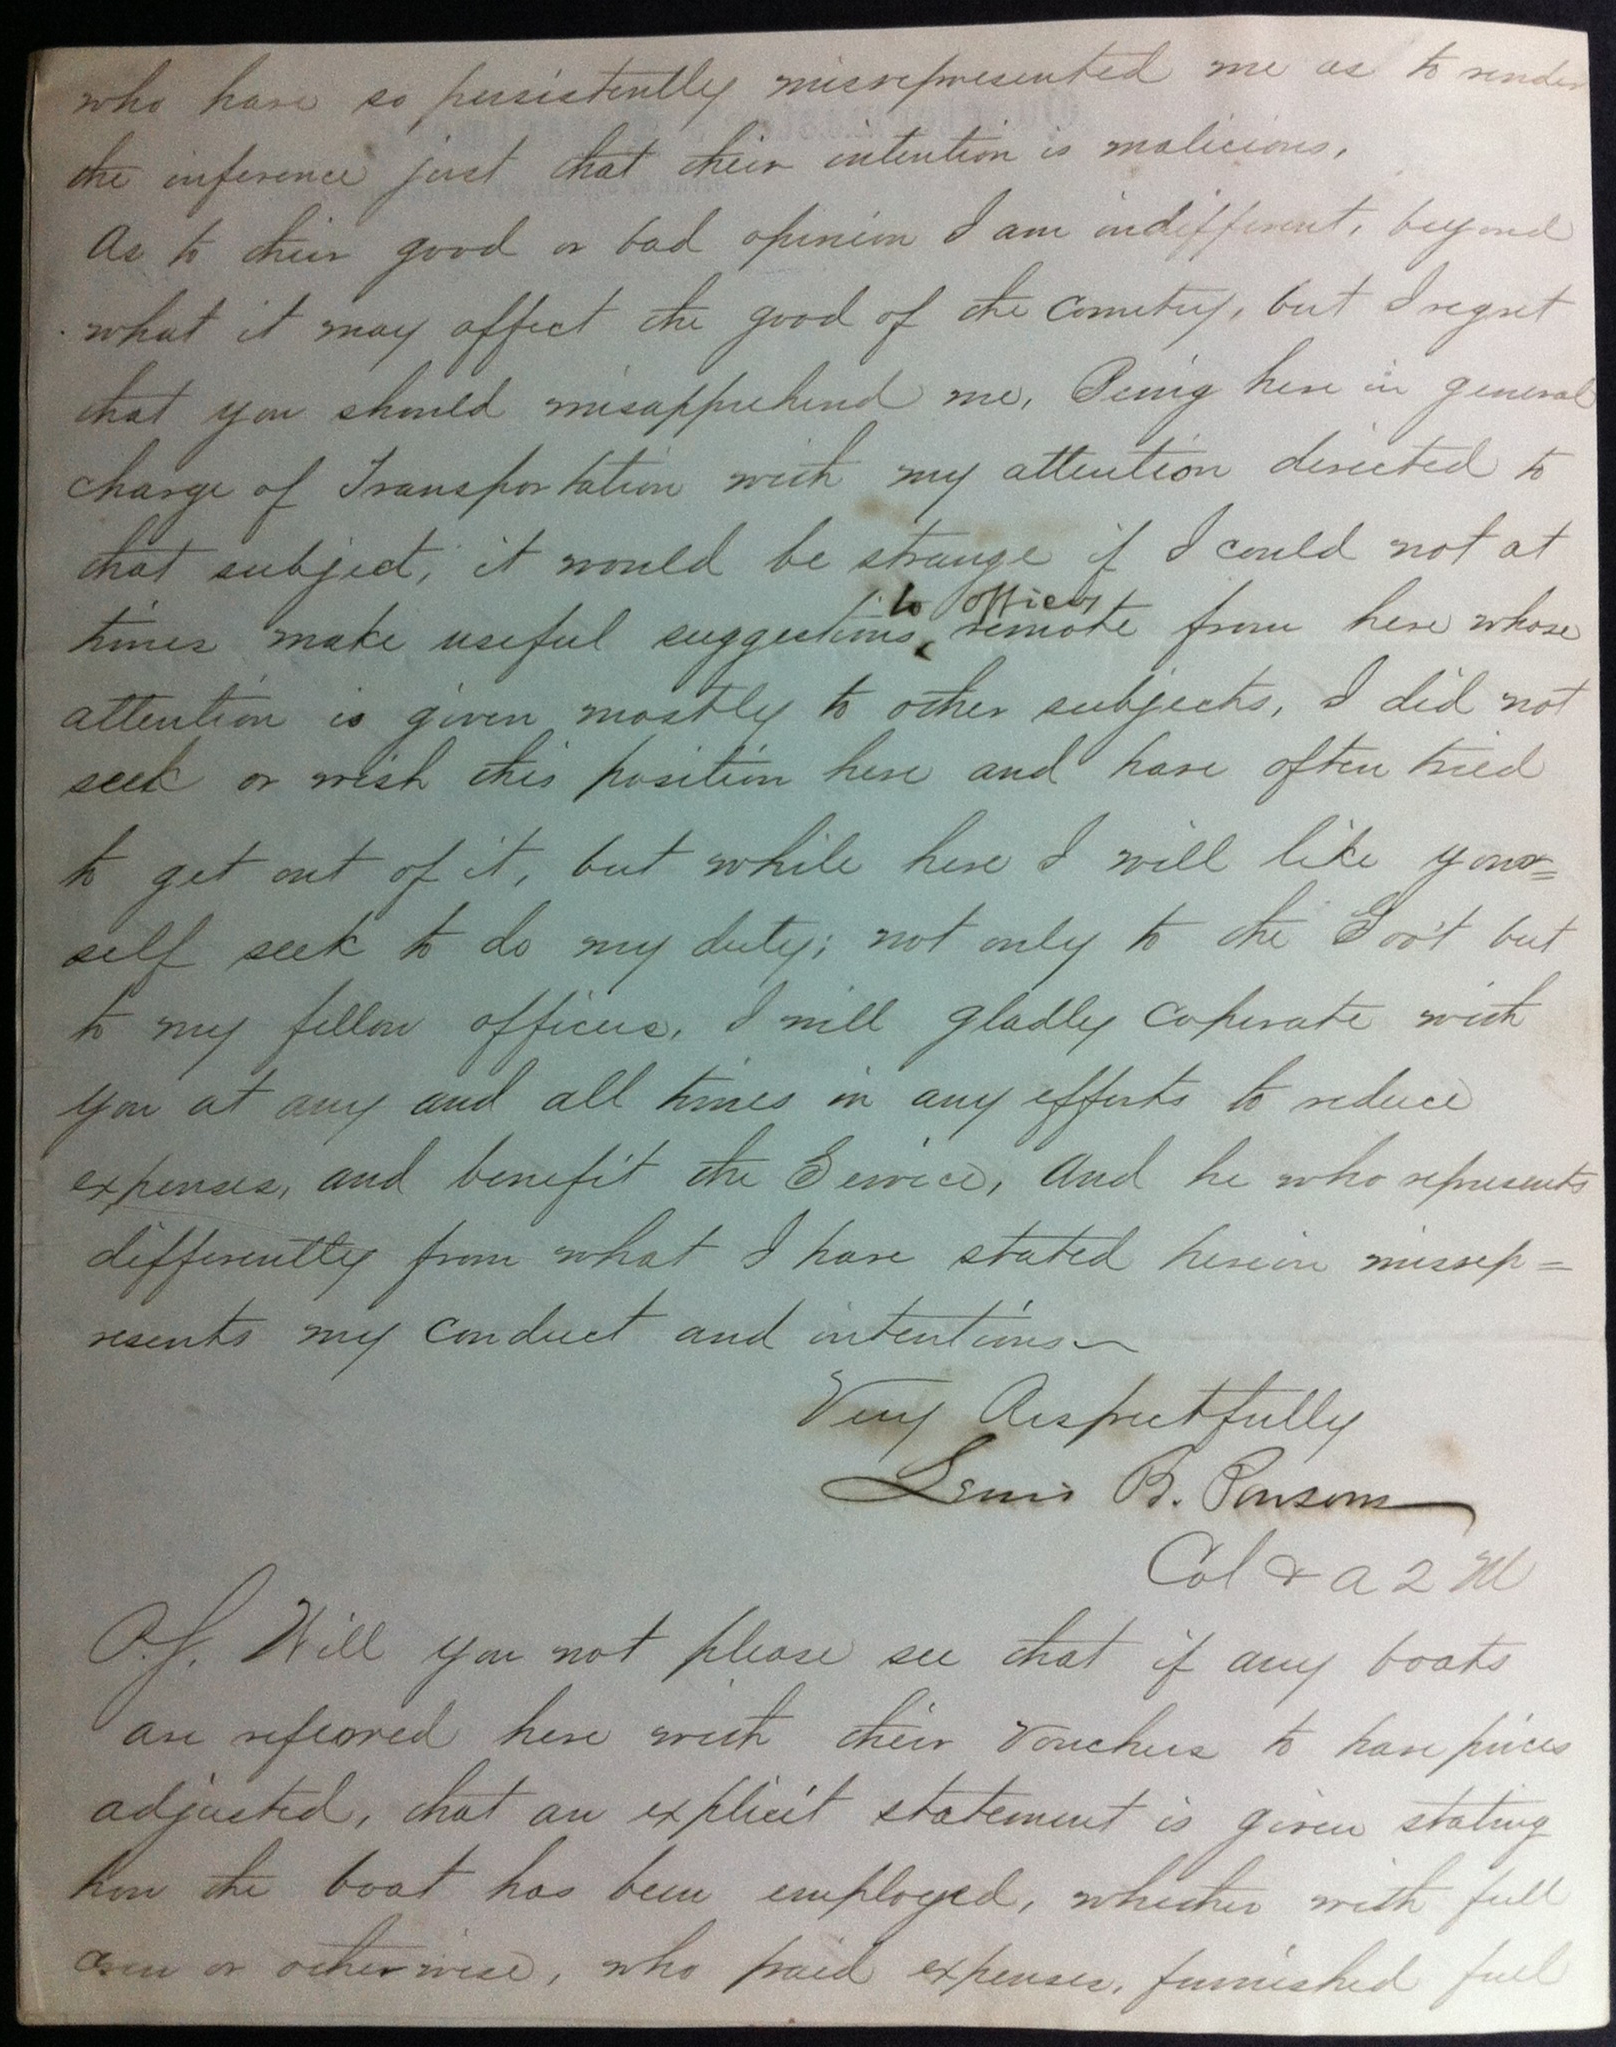 who have so persistently misrepresented me as to render
the inference just that their intention is malicious.
As to their good or bad opinion I am indifferent, beyond
what it may affect the good of the country, but I regret
that you should misapprehend me. Being here in general
charge of Transportation with my attention directed to
that subject, it would be strange if I could not at
to officers
times make useful suggestions remote from here whose
attention is given mostly to other subjects, I did not
seek or wish this position here and have often tried
to get out of it, but while here I will like your=
self seek to do my duty; not only to the Gov't but
to my fellow officers, I will gladly coperate with
you at any and all times in any efforts to reduce
expenses, and benefit the Service, And he who represents
differently from what I have stated herein misrep=
resents my conduct and intentions
Very Respectfully
Lewis B. Parsons
Col & A Q M
P.S. Will you not please see that if any boats
are referred here with their Vouchers to have prices
adjusted, that an explicit statement is given stating
how the boat has been employed, whether with full
crew or otherwise, who paid expenses, furnished fuel